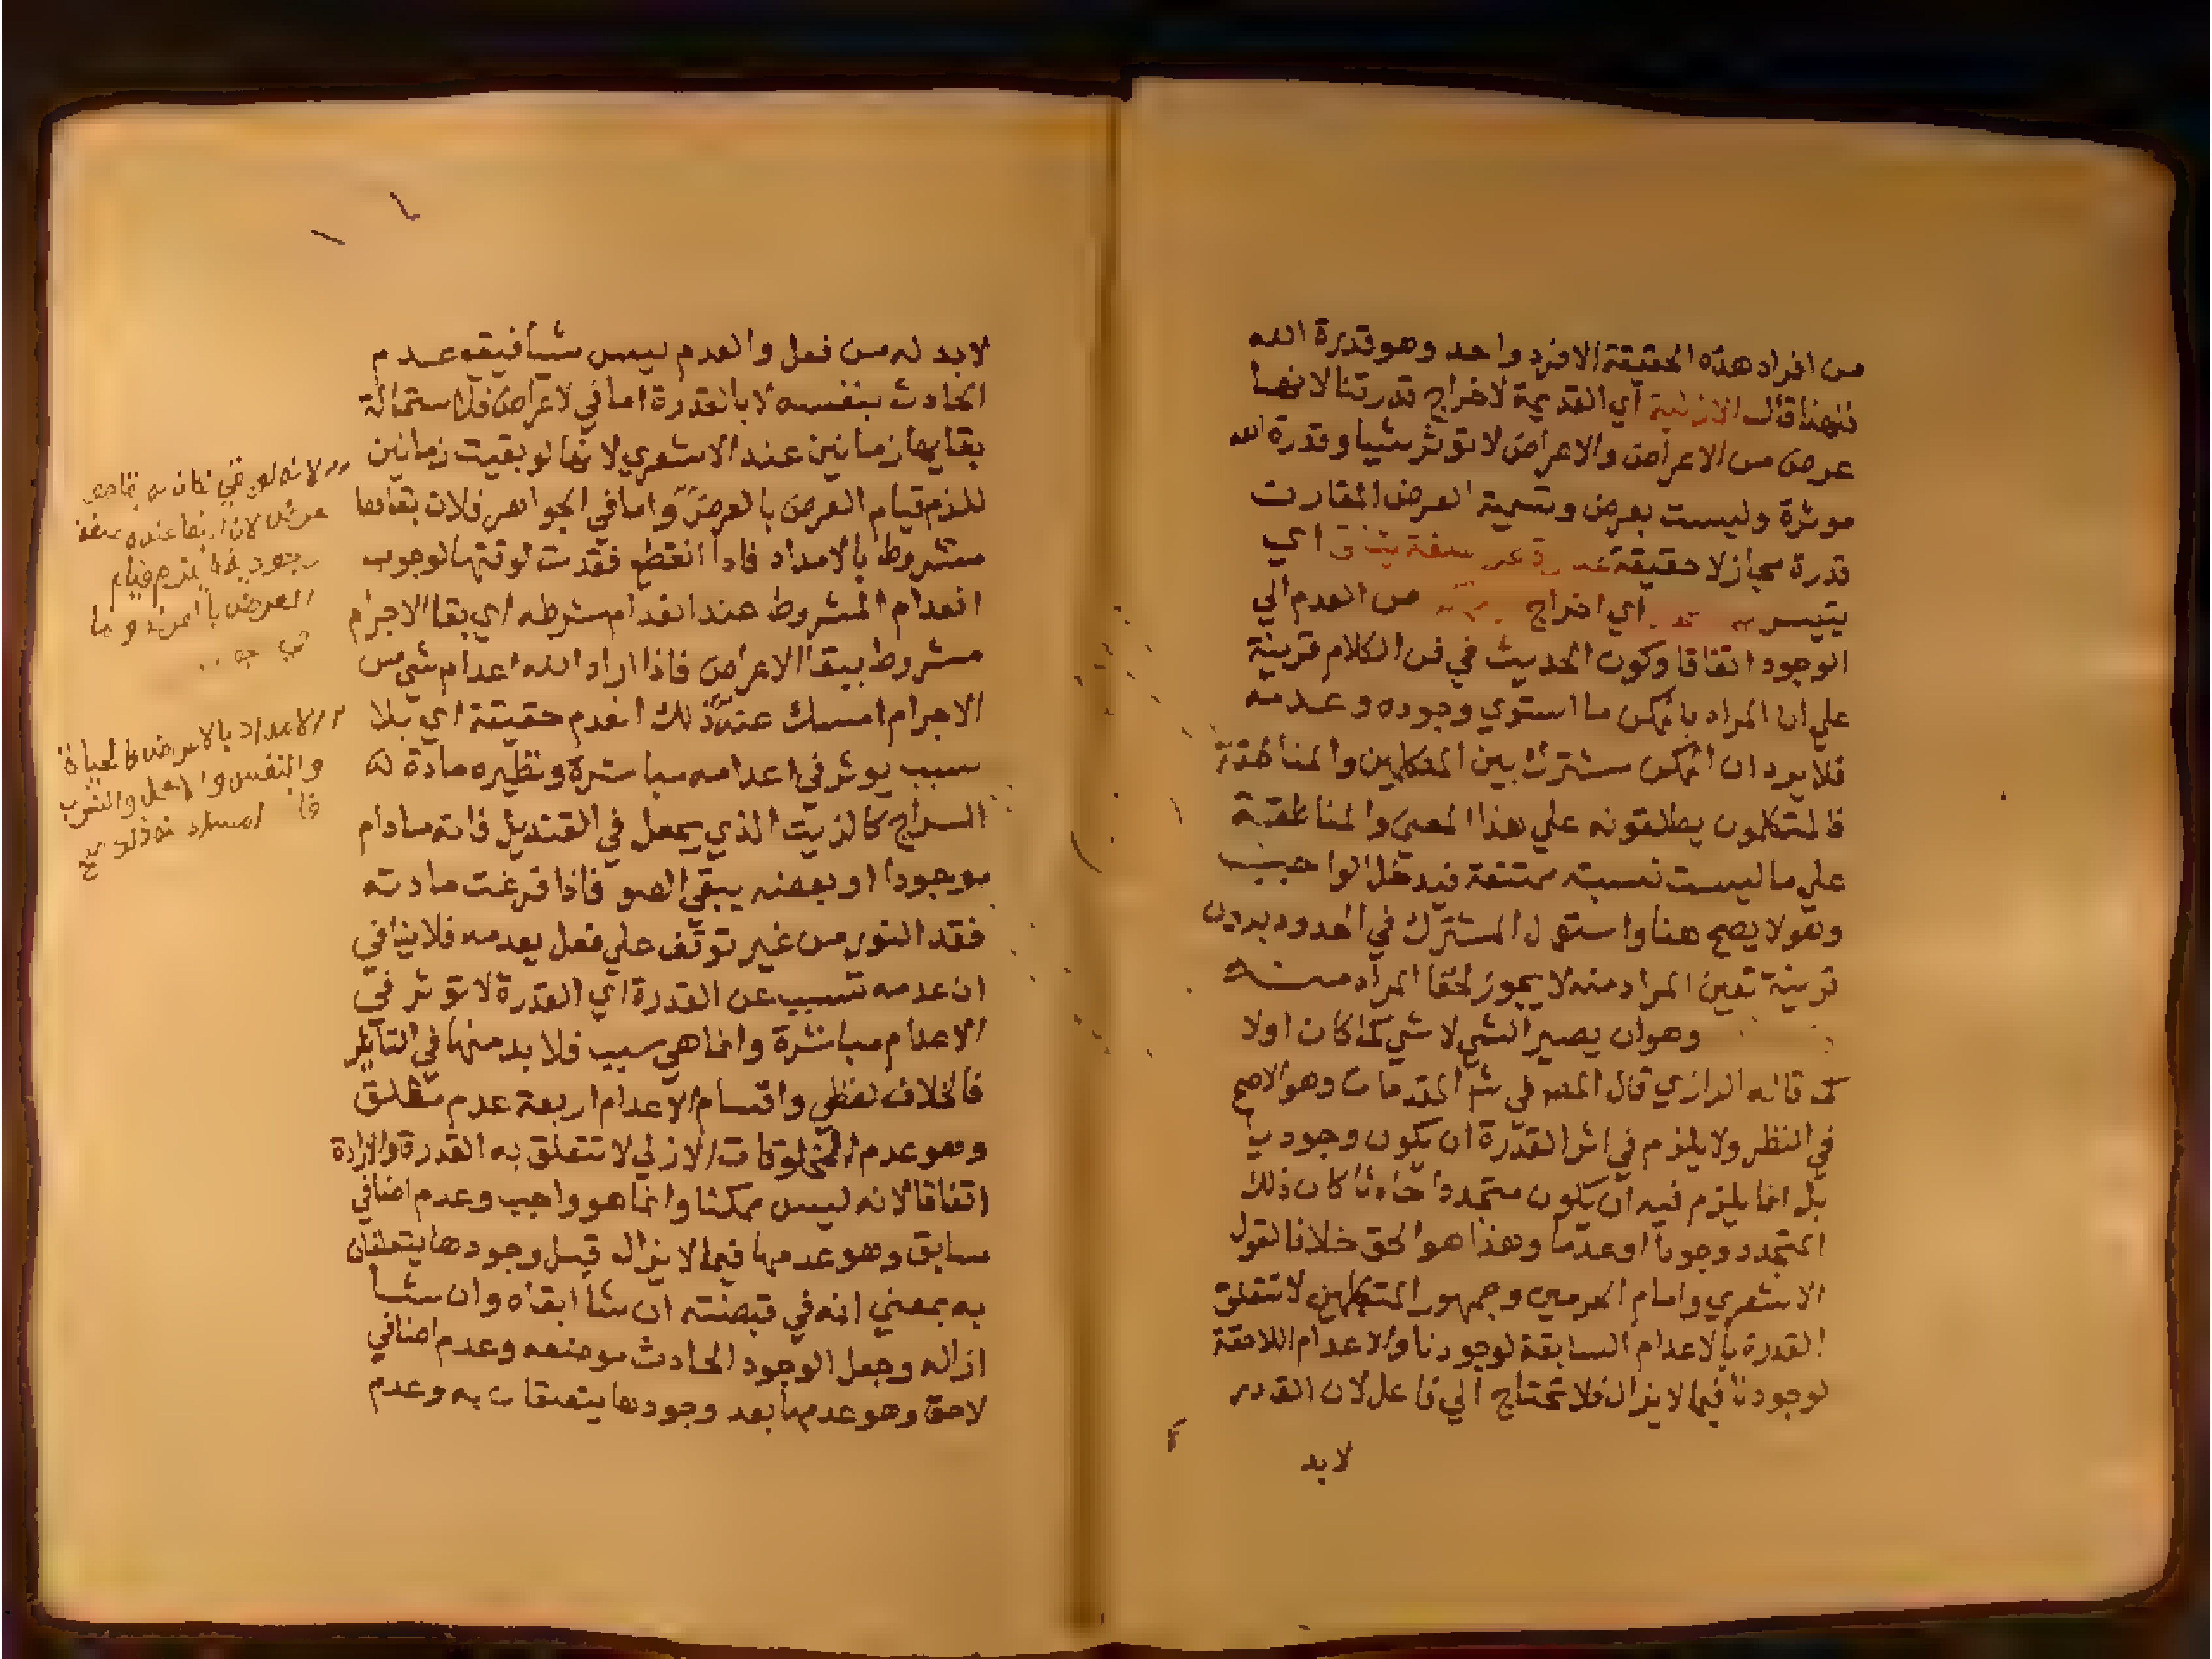 من افراد هذه الحقيقة الا فرد واحد وهو قدرة الله
فلهذا قال الازلية أي القديمة لاخراج قدرتنا لانها
عرض من الاعراض والاعراض لا توثر شيا وقدرة الله
موثرة وليست بعرض وتسمية العرض المقارن
قدرة مجاز لا حقيقة صفة اي
يتيسر اي اخراج من العدم الي
الوجود اتفاقا وكون الحديث في فن الكلام قرينة
علي ان المراد بالممكن ما استوي وجوده وعدمه
فلا يرد ان الممكن مشترك بين المتكلمين والمناطقة
فالمتكلمون يطلقونه علي هذا المعني والمناطقة
علي ما ليست نسبته ممتنعة فيدخل الواجب
وهو لا يصح هنا واستعمال المشترك في الحدود بدون
قرينة تعين المراد منه لا يجوز لخفا المراد منه
وهو ان يصير الشي لا شي كما كان اولا
كما قاله الرازي قال المصـ في شر المقدمات وهو الاصح
في النظر ولا يلزم في اثر القدرة ان يكون وجوديا
بل انما يلزم فيه ان يكون متجددا حادثا كان ذلك
المتجدد وجودا او عدما وهذا هو الحق خلافا لقول
الاشعري وامام الحرمين وجمهور المتكلمين لا تتعلق
القدرة بالاعدام السابقة لوجودنا والاعدام اللاحقة
لوجودنا فيما لا يزال فلا تحتاج الي فاعل لان القدرة
لابد
لابد له من فعل والعدم ليس شيا فيقع عدم
الحادث بنفسه لا بالقدرة اما في لاعراض فلاستحالة
بقايها زمانين عند الاشعري لانها لو بقيت زمانين
للزم قيام العرض بالعرض واما في الجواهر فلان بقاها
مشروط بالامداد فاذا انقطع فقدت لوقتها لوجوب
انعدام المشروط عند انعدام شرطه اي بقا الاجرام
مشروط ببقا الاعراض فاذا اراد الله اعدام شي من
الاجرام امسك عنه ذلك انعدم حقيقة اي بلا
سبب يوثر في اعدامه مباشرة ونظيره مادة
السراج كالزيت الذي يجعل في القنديل فانه مادام
موجودا او بعضه يبقي الضو فاذا فرغت مادته
فقد النور من غير توقف علي فعل يعدمه فلا ينافي
ان عدمه تسبب عن القدرة اي القدرة لا توثر في
الاعدام مباشرة وانما هي سبب فلابد منها في التاثير
فالخلاف لفظي واقسام الاعدام اربعة عدم مطلق
وهو عدم المخلوقات الازلي لا تتعلق به القدرة والارادة
اتفاقا لانه ليس ممكنا وانما هو واجب وعدم اضافي
سابق وهو عدمها فيما لا يزال قبل وجودها يتعلقان
به بمعني انه في قبضته ان شا ابقاه وان شا
ازاله وجعل الوجود الحادث موضعه وعدم اضافي
لاحق وهو عدمها بعد وجودها يتعلقان به وعدم
لانه لو بقي لكان
عرض لان البقا عنده صفة
وجودية فيلزم قيام
العرض بالعرض
الامداد بالاعراض كالحياة
والنفس والاكل والشرب